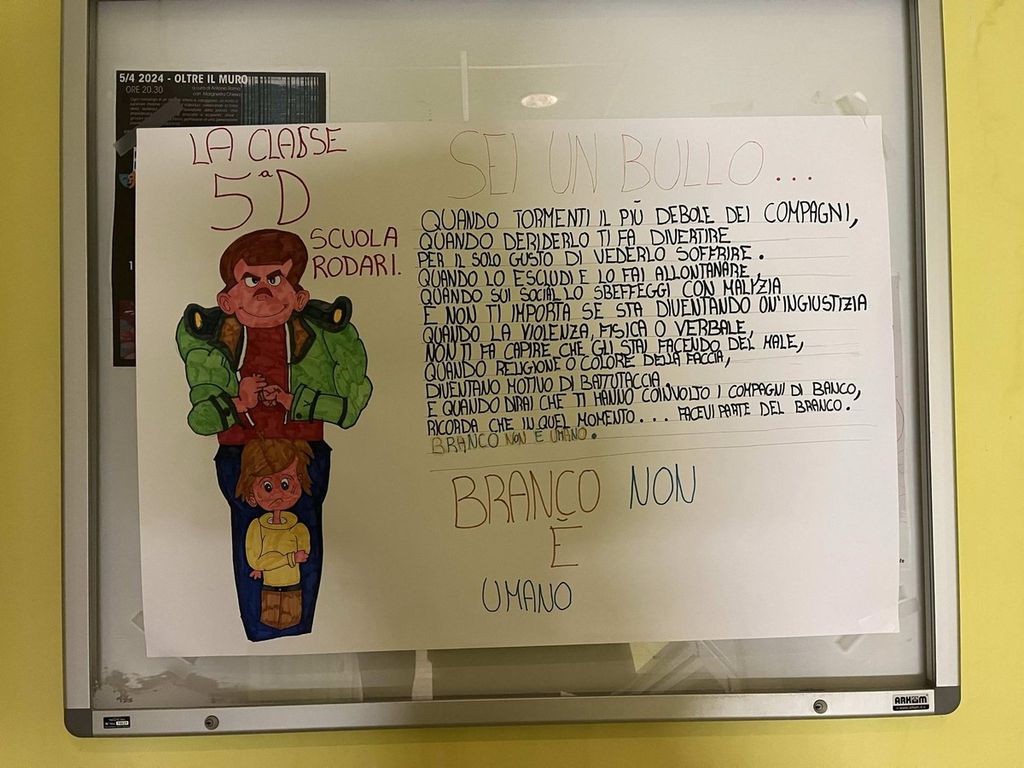 5/4 2024 - OLTRE IL MURO
ORE 20.30
LA CLASSE
5ªD
SCUOLA
RODARI.
SEI UN BULLO...
QUANDO TORMENTI IL PIÙ DEBOLE DEI COMPAGNI,
QUANDO DERIDERLO TI FA DIVERTIRE
PER IL SOLO GUSTO DI VEDERLO SOFFRIRE.
QUANDO LO ESCLUDI E LO FAI ALLONTANARE,
QUANDO SUI SOCIAL LO SBEFFEGGI CON MALIZIA
E NON TI IMPORTA SE STA DIVENTANDO UN'INGIUSTIZIA
QUANDO LA VIOLENZA, FISICA O VERBALE,
NON TI FA CAPIRE CHE GLI STAI FACENDO DEL MALE,
QUANDO RELIGIONE O COLORE DELLA FACCIA,
DIVENTANO MOTIVO DI BATTUTACCIA,
E QUANDO DIRAI CHE TI HANNO COINVOLTO I COMPAGNI DI BANCO,
RICORDA CHE IN QUEL MOMENTO.... FACEVI PARTE DEL BRANCO.
BRANCO NON E UMANO.
BRANCO NON
È
UMANO
ARHOM